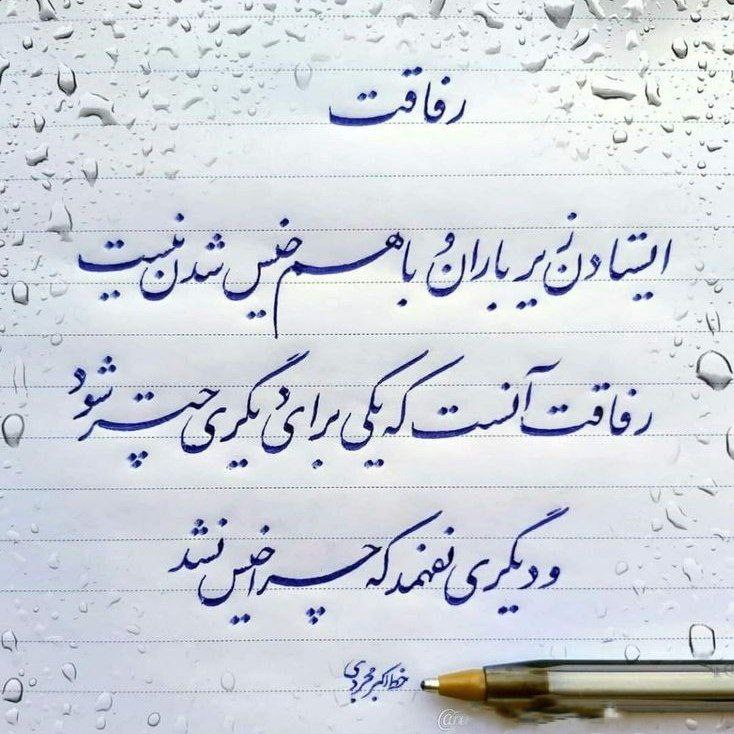 رفاقت
ایستادن زیر باران و با هم خیس شدن نیست
رفاقت آنست که یکی برای دیگری چتر شود
و دیگری نفهمد که چرا خیس نشد
خط اکبر مجردی